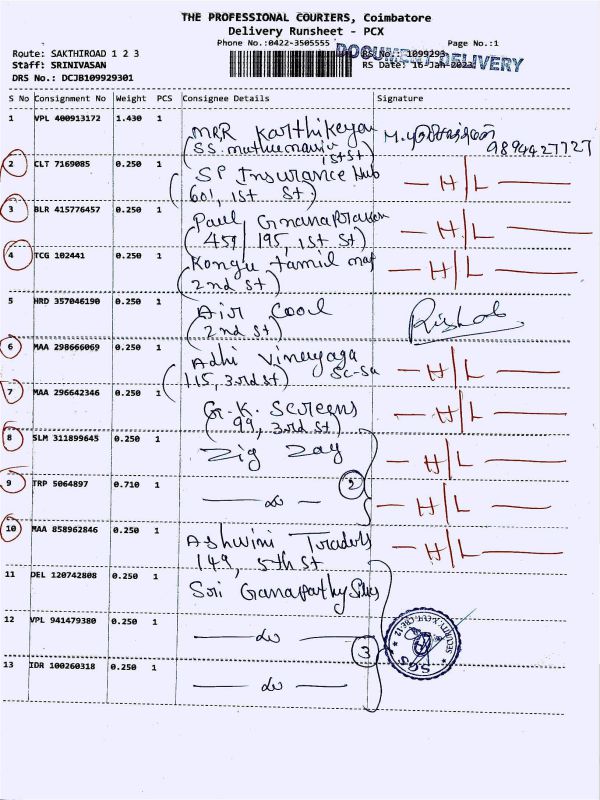 THE PROFESSIONAL COURIERS, Coimbatore
Delivery Runsheet - PCX
Phone No.:0422-3505555 Page No.:1
DOCUMENT DELIVERY
Route: SAKTHIROAD 1 2 3 RS No.: 1099293
Staff: SRINIVASAN RS Date: 16-Jan-2023
DRS No.: DCJB109929301
S No Consignment No Weight PCS Consignee Details Signature
1 VPL 400913172 1.430 1 MRR Karthikeyan
9894427727
1st St)
2 CLT 7169085 0.250 1 SP Insurance Hub H/L
(601, 1st St)
3 BLR 415776457 0.250 1 Paul H/L
(459/195, 1st St)
4 TCG 102441 0.250 1 Kongu tamil H/L
(2nd St)
5 HRD 357046190 0.250 1 Air Cool
(2nd St)
6 MAA 298666069 0.250 1 Adhi Vinayaga H/L
(115, 3rd St)
7 MAA 296642346 0.250 1 G.K. Screens H/L
(99, 3rd St)
8 SLM 311899645 0.250 1 Zig Zag H/L
9 TRP 5064897 0.710 1 — do — 2 H/L
10 MAA 858962846 0.250 1 Ashwini Traders H/L
149, 5th St
11 DEL 120742808 0.250 1 Sri Ganapathy Silks
12 VPL 941479380 0.250 1 — do — 3
SGS
13 IDR 100260318 0.250 1 — do —